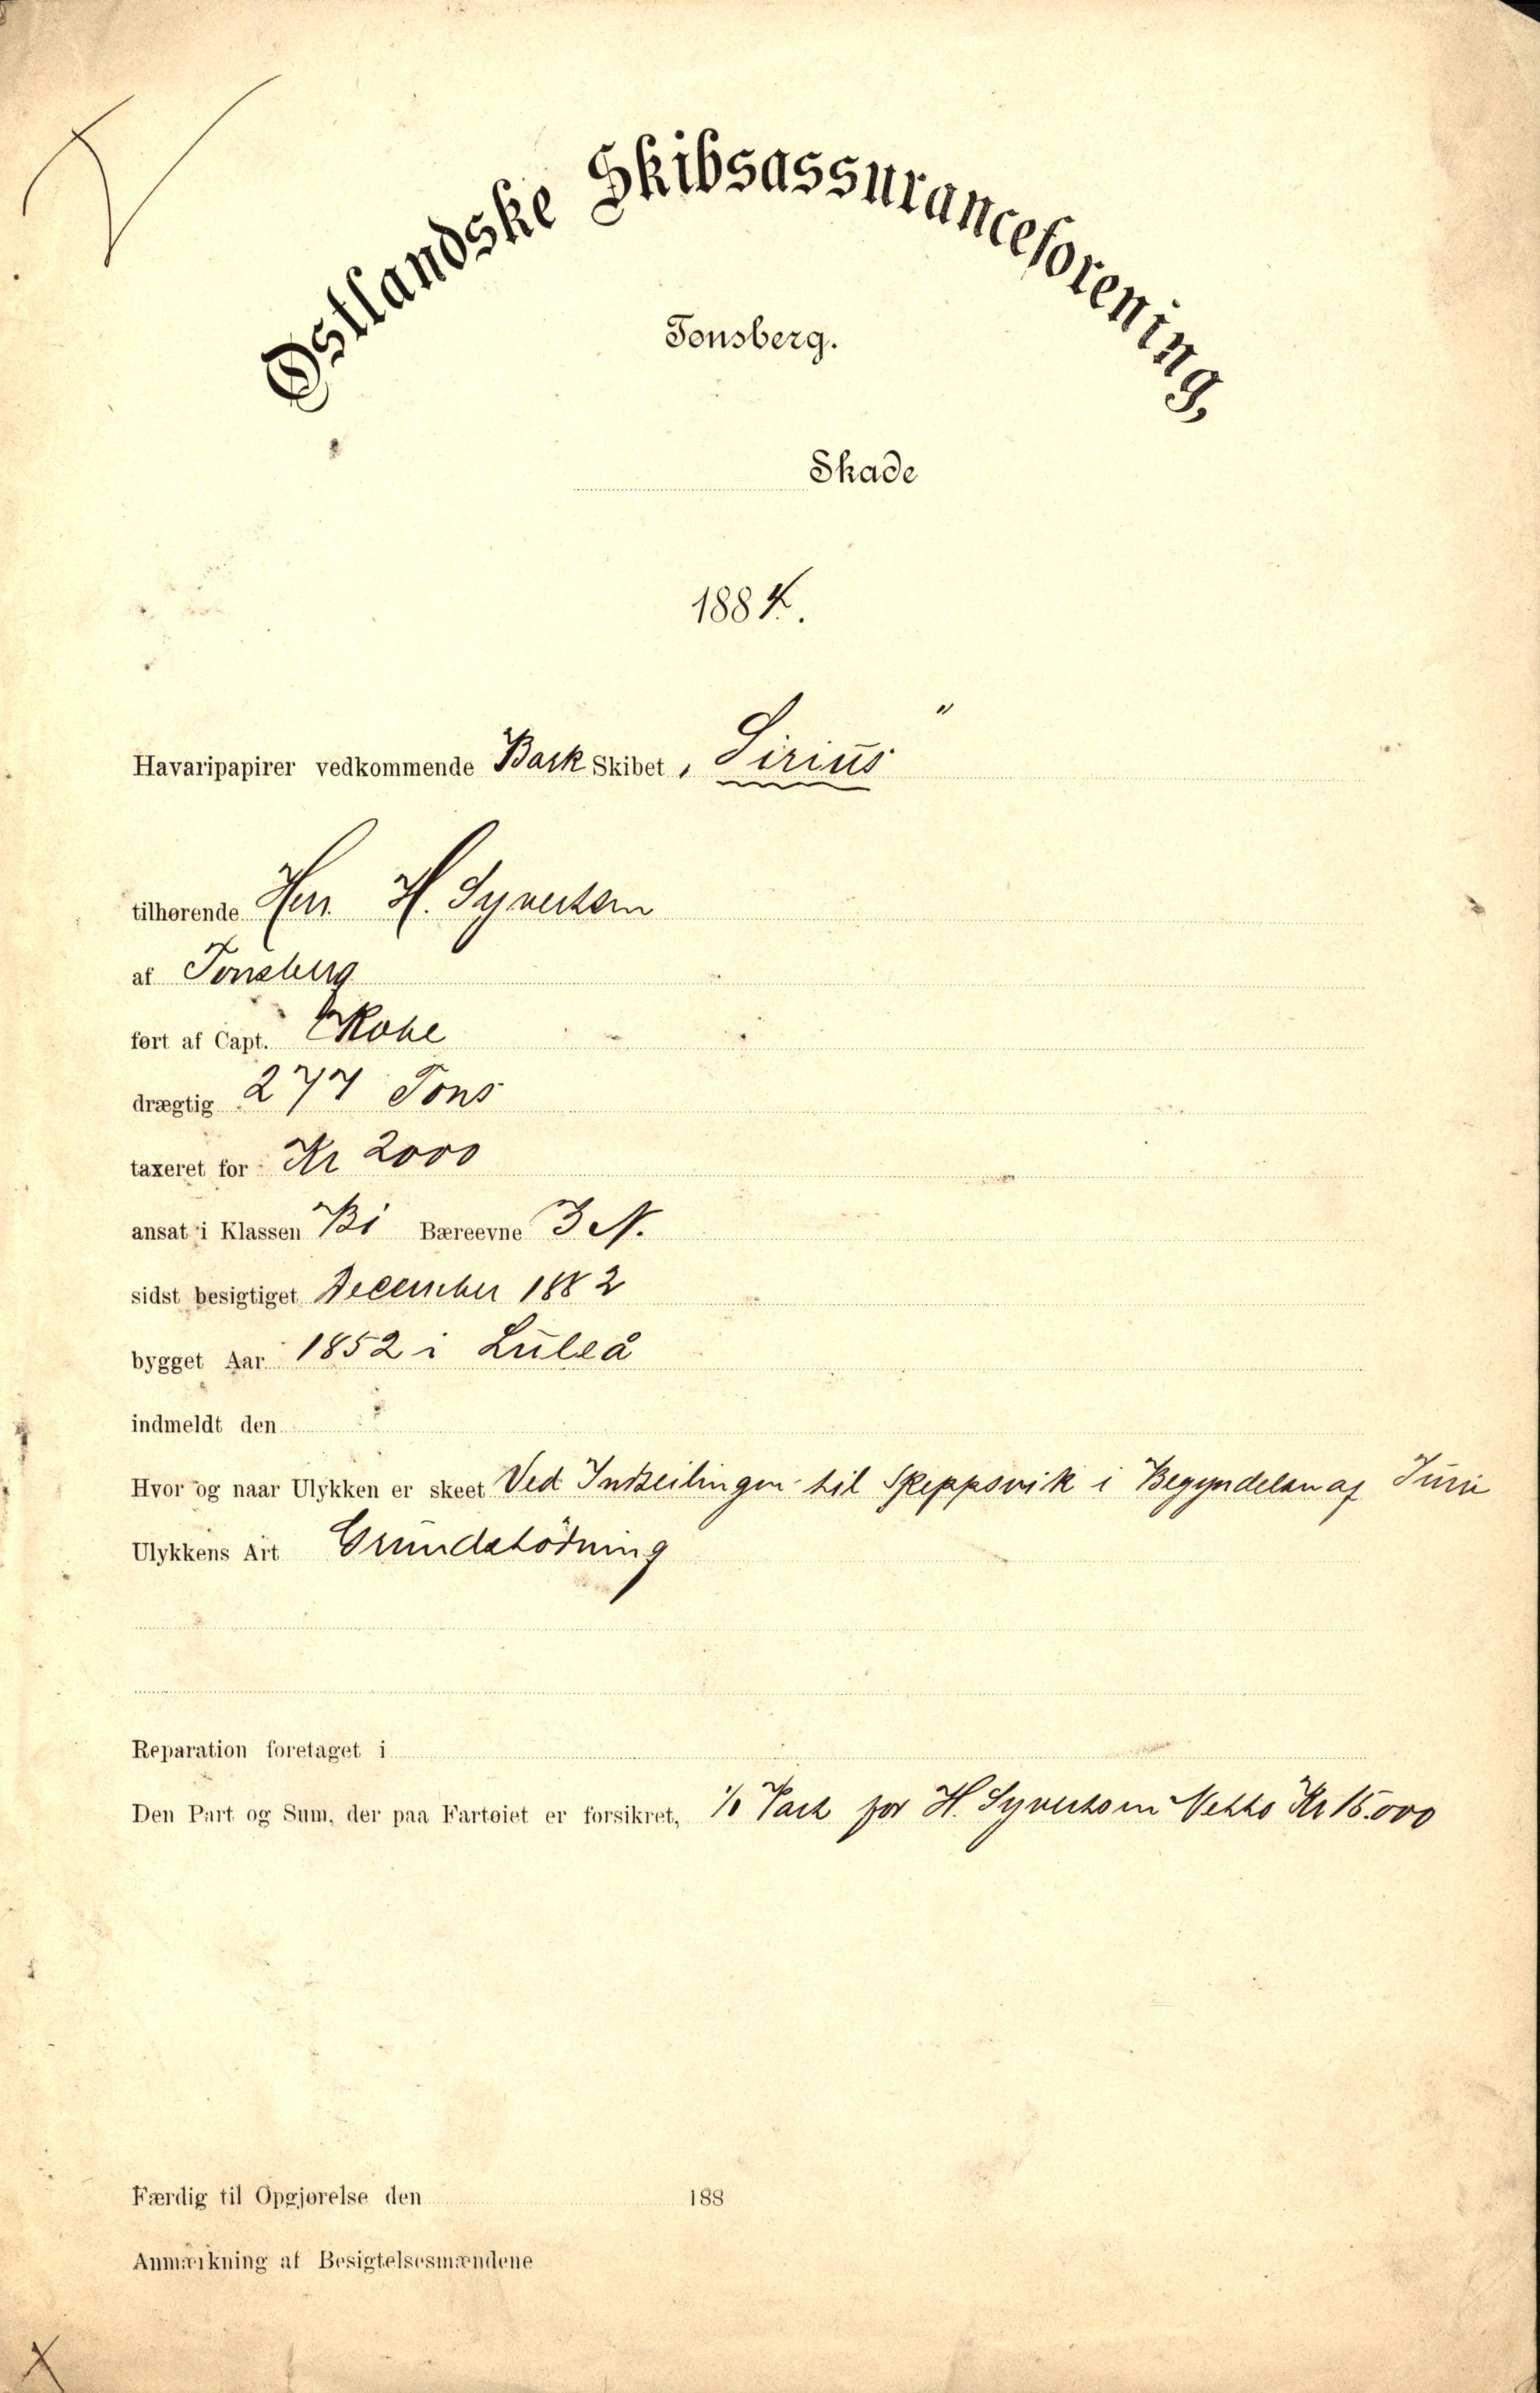 Østlandske Skibsassuranceforening,
Tønsberg.
Skade
1884.
Havaripapirer vedkommende Bark Skibet „Sirius"
tilhørende Herr H. Syvertsen
af Tønsberg
ført af Capt.
drægtig 277 Tons
taxeret for Kr 2000
ansat i Klassen B1 Bæreevne 3 N.
sidst besigtiget December 1882
bygget Aar 1852 i Luleå
indmeldt den
Hvor og naar Ulykken er skeet Ved Indseilingen til Skeppsvik i Begyndelsen af Juni
Ulykkens Art Grundstödning
Reparation foretaget i
Den Part og Sum, der paa Fartøiet er forsikret, 1/1 Part for H. Syvertsen Netto Kr 15.000
Færdig til Opgjørelse den 188
Anmærkning af Besigtelsesmændene